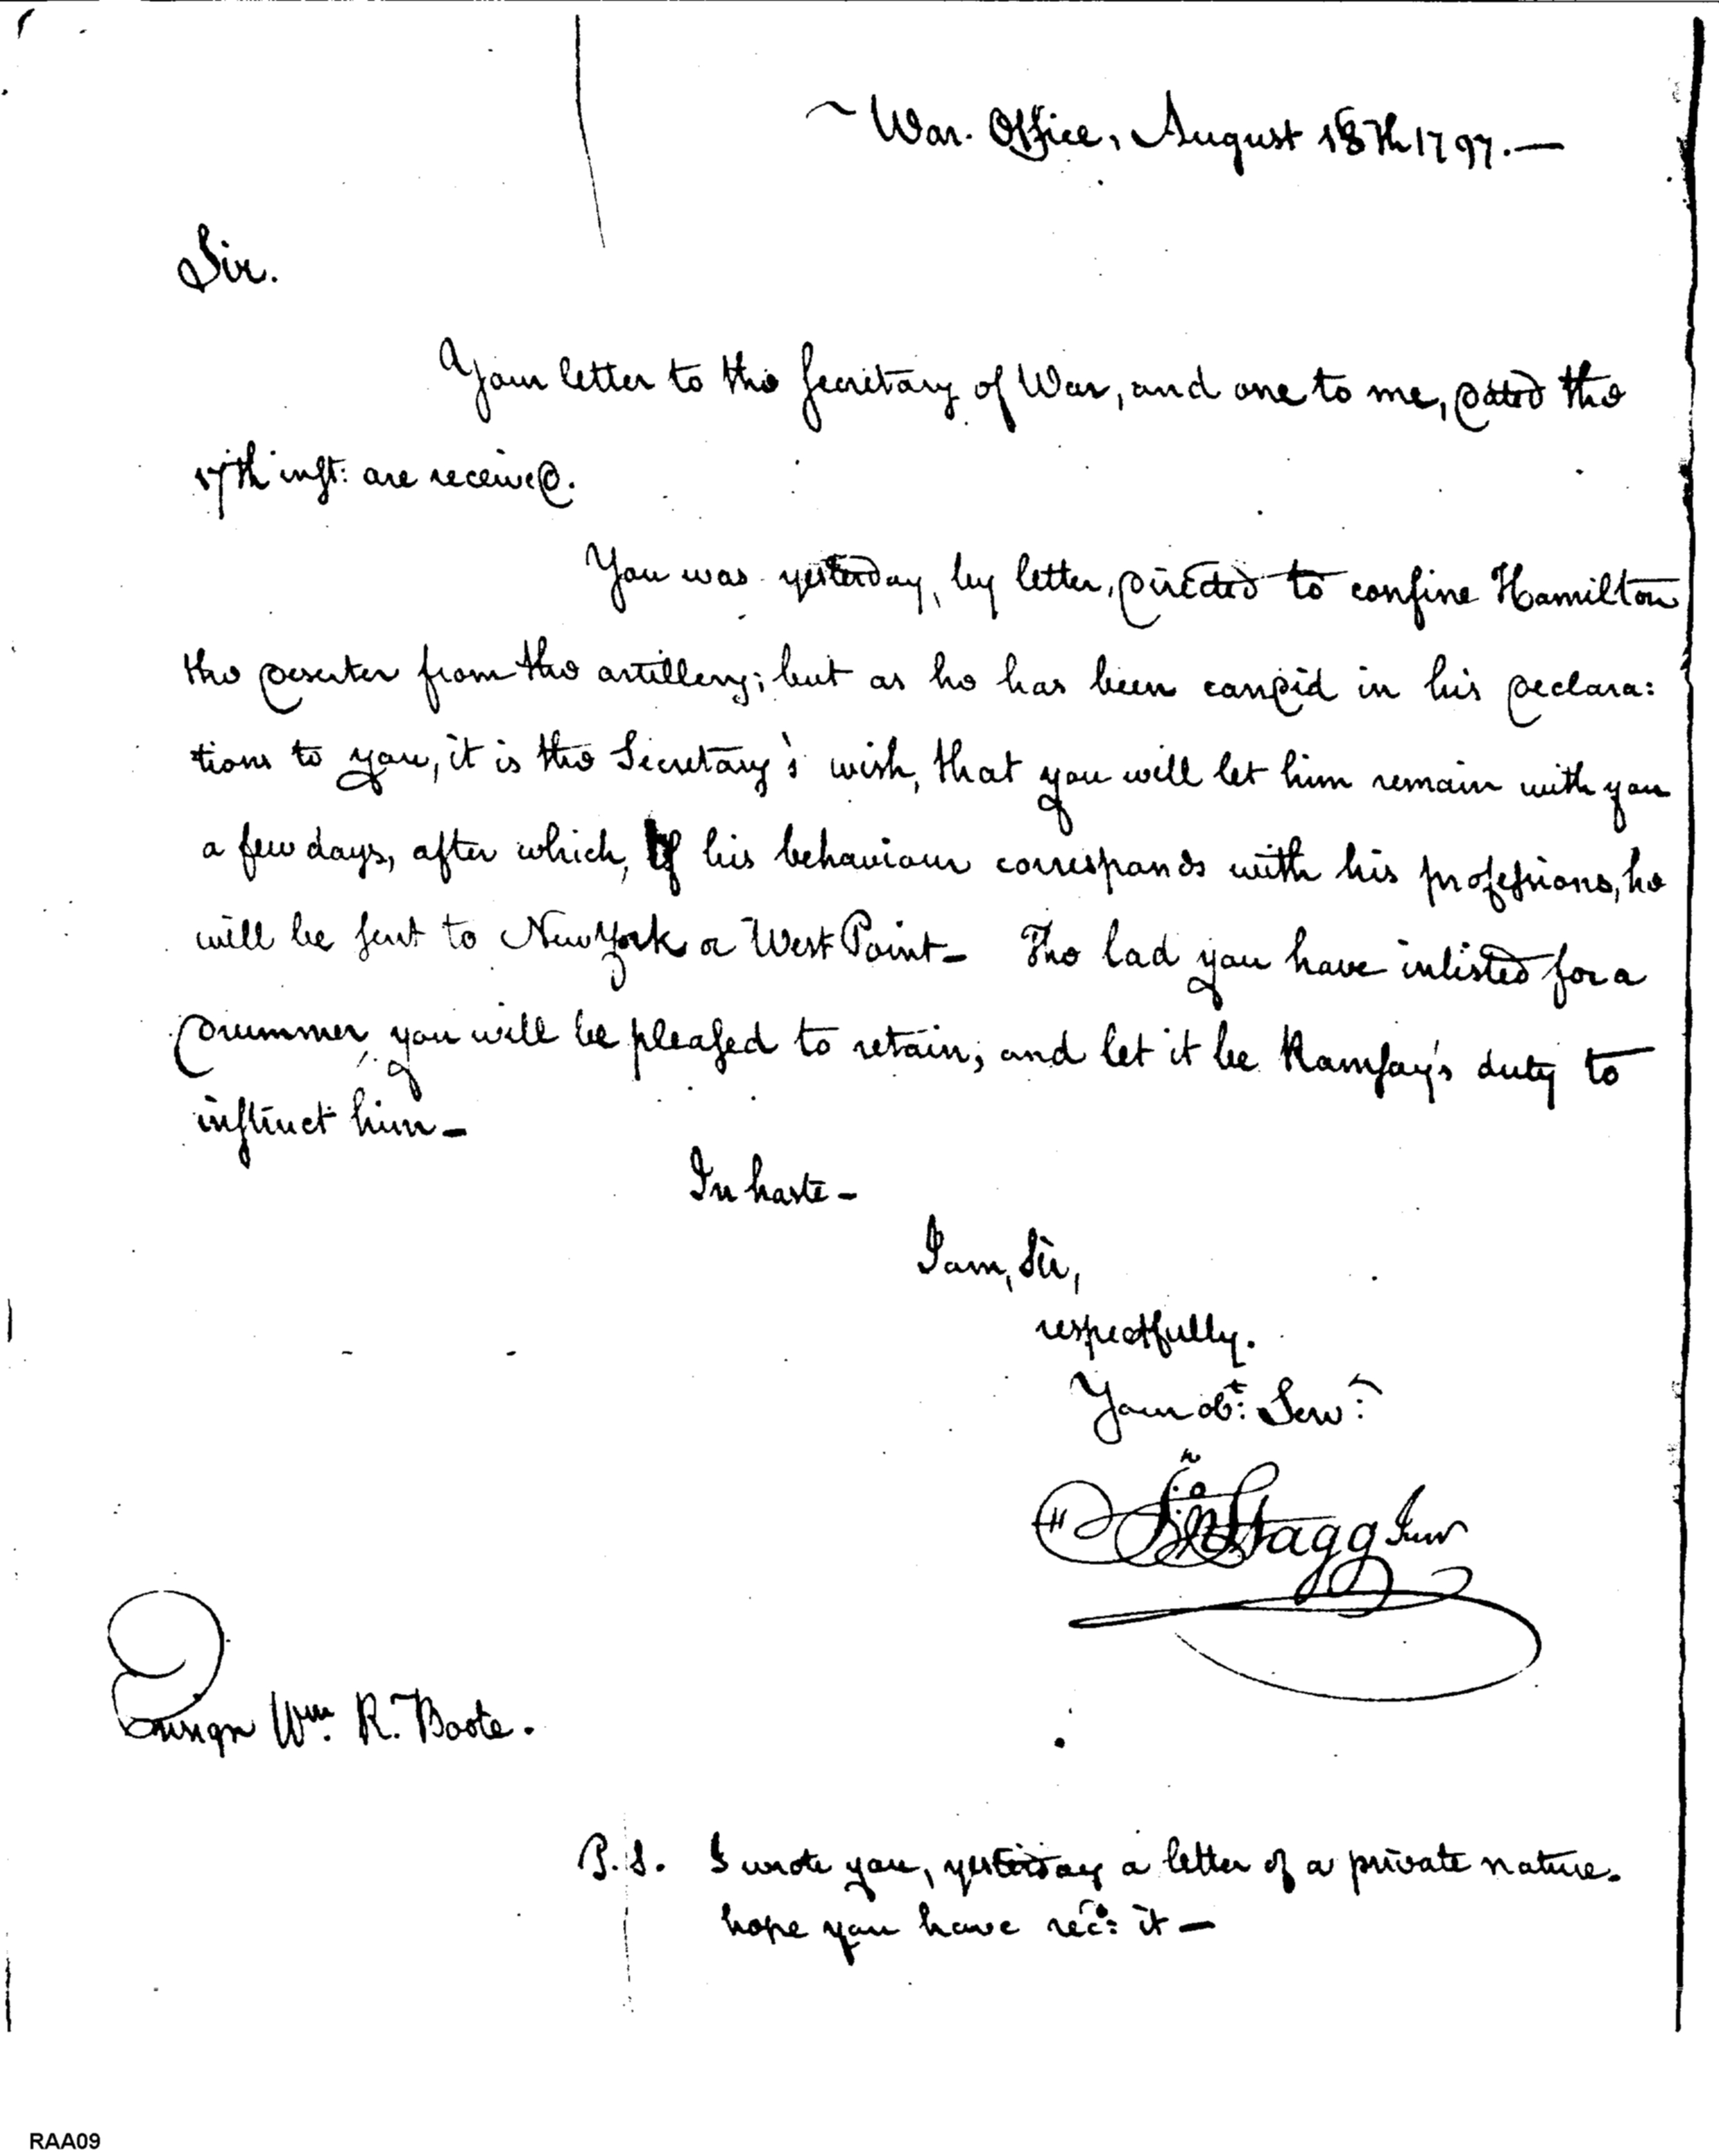 War. Office, August 18th 1797.—
Sir.
Your letter to the Secretary of War, and one to me, dated the
17th inst: are received.
You was yesterday, by letter, directed to confine Hamilton
the deserter from the artillery; but as he has been candid in his declara:
tions to you, it is the Secretary's wish, that you will let him remain with you
a few days, after which, If his behaviour corresponds with his professions, he
will be sent to New York or West Point— The lad you have inlisted for a
drummer, you will be pleased to retain, and let it be Ramsay's duty to
instruct him—
In haste—
I am, Sir,
respectfully.
Your obt: Servt:
Jno Stagg Junr
Ensign Wm. R. Boote.
P.S. I wrote you, yesterday a letter of a private nature.
hope you have recd: it—
RAA09